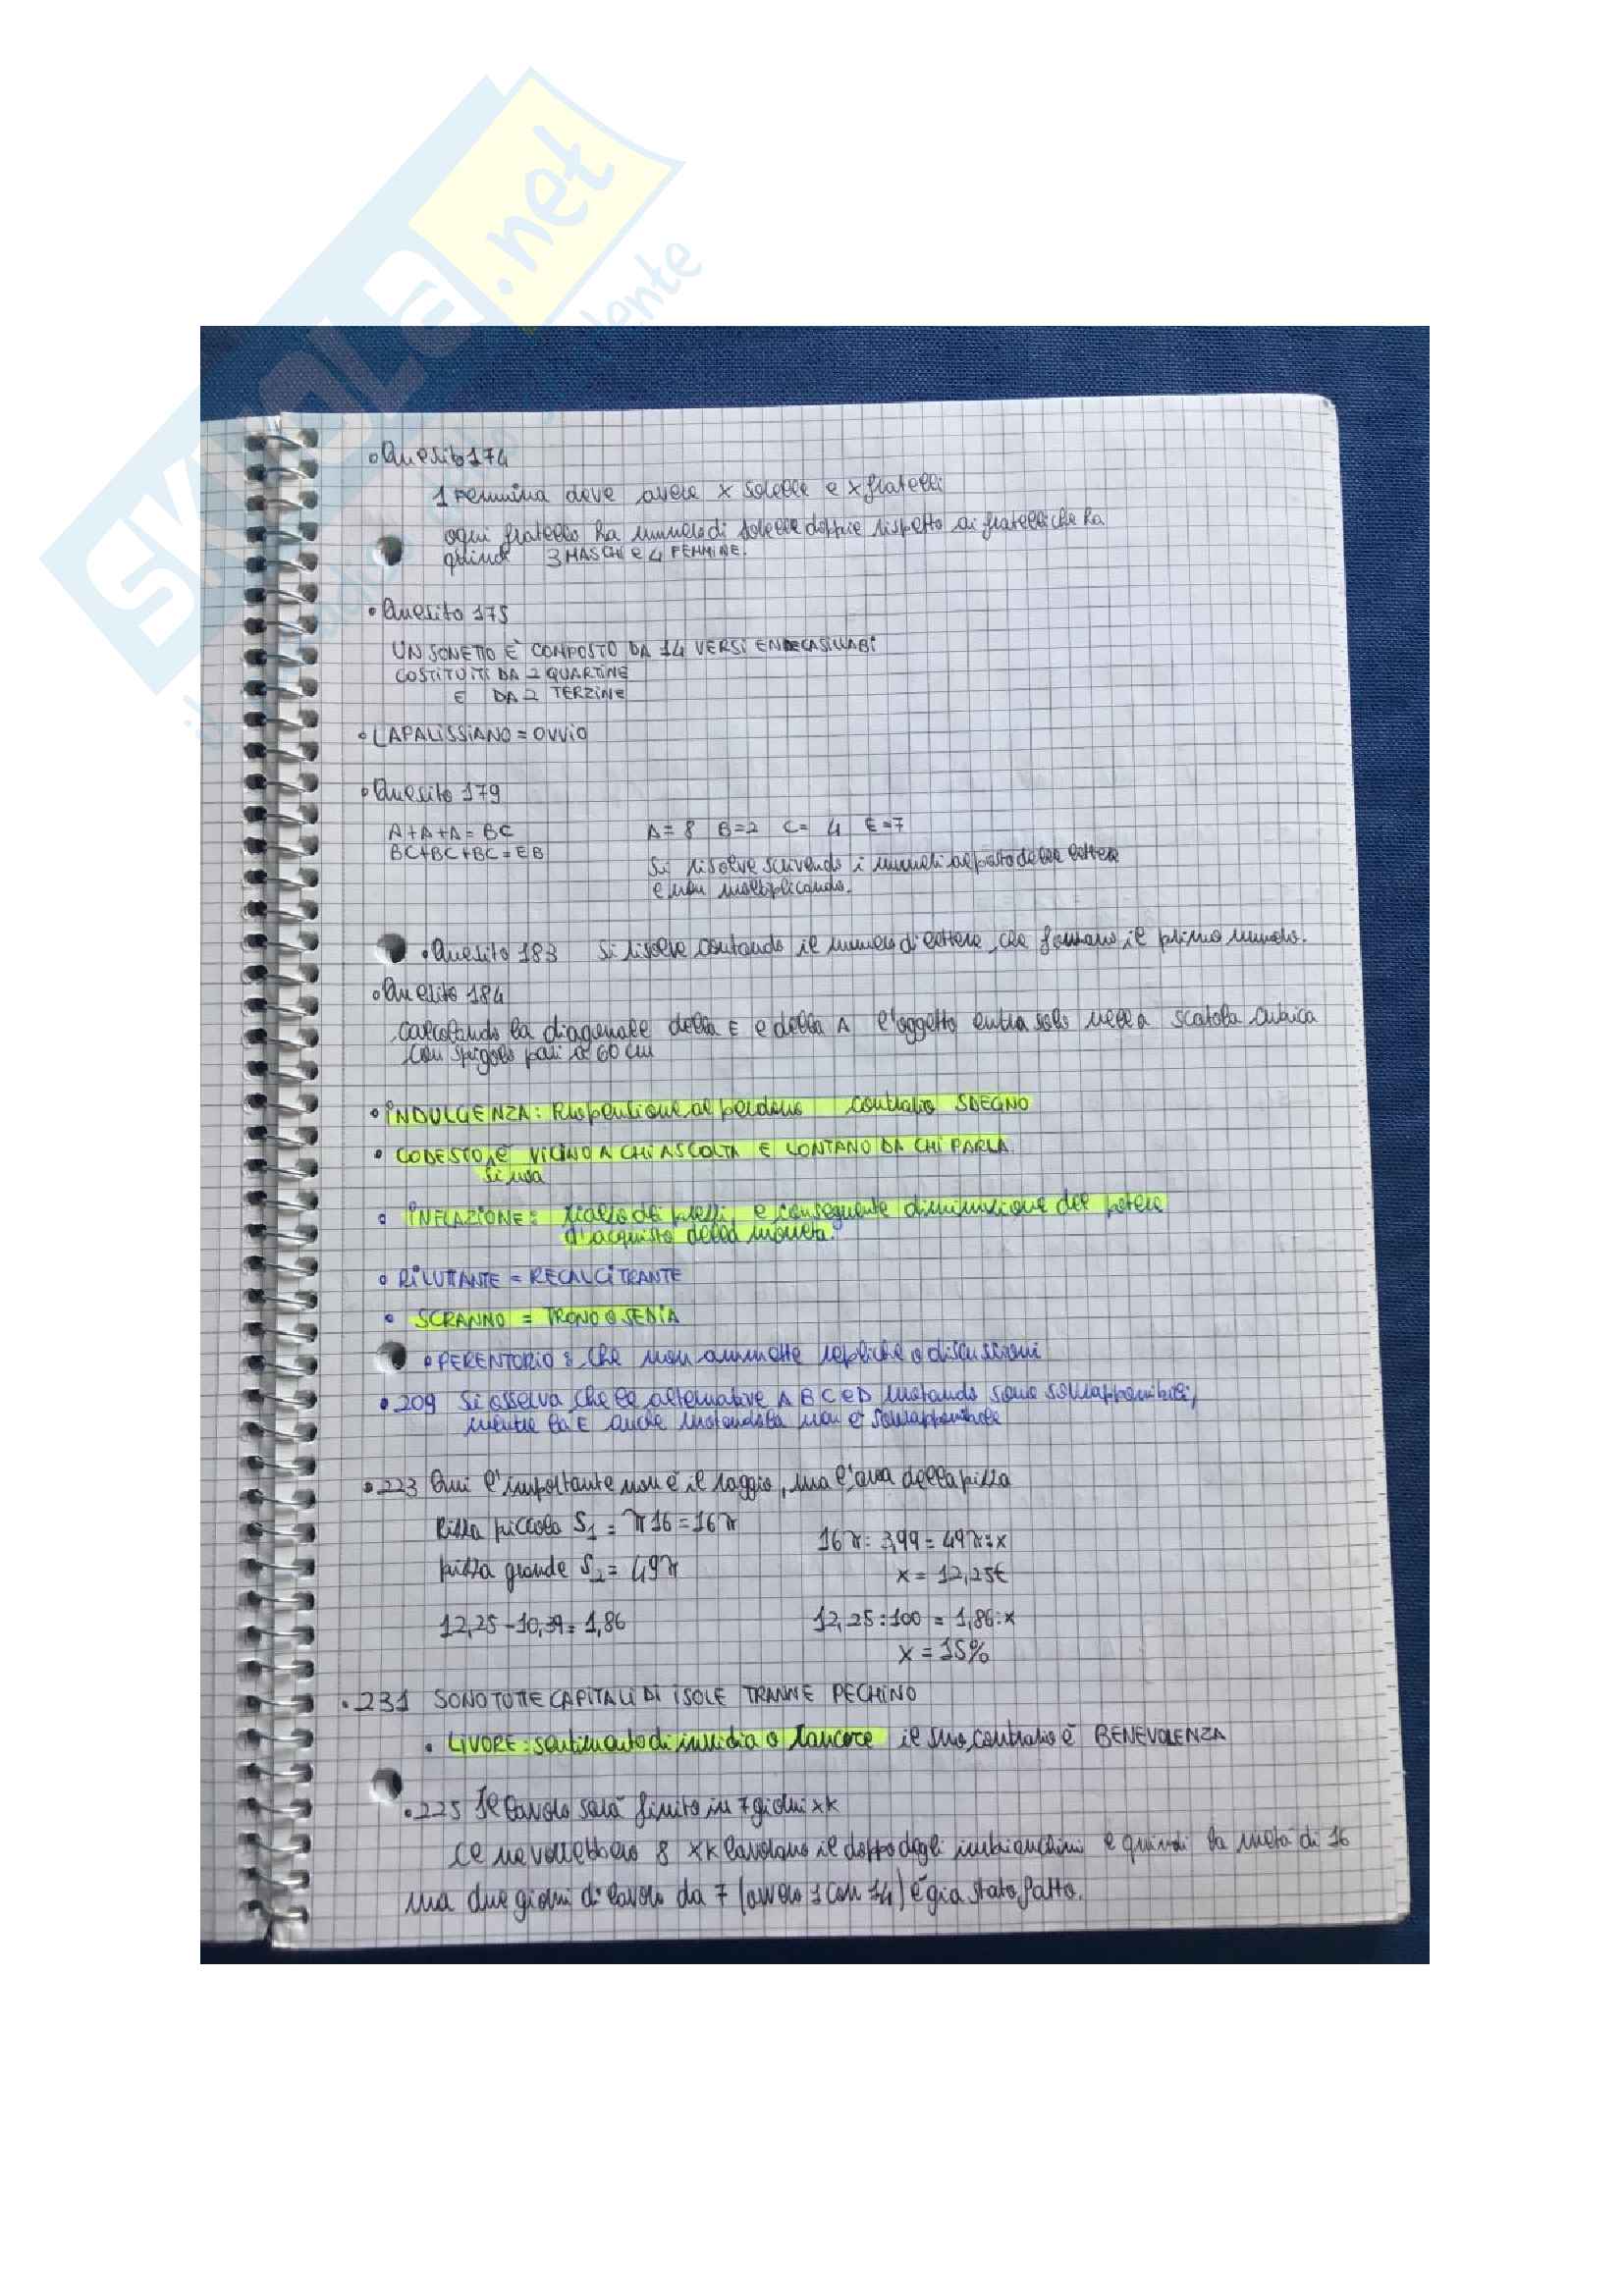 SKUOLA.net
• Quesito 174
1 Femmina deve avere x sorelle e x fratelli
ogni fratello ha numero di sorelle doppie rispetto ai fratelli che ha
quindi 3 MASCHI e 4 FEMMINE.
• Quesito 175
UN SONETTO È COMPOSTO DA 14 VERSI ENDECASILLABI
COSTITUITI DA 2 QUARTINE
E DA 2 TERZINE
• LAPALISSIANO = OVVIO
• Quesito 179
A+A+A = BC A= 8 B=2 C= 4 E=7
BC+BC+BC = EB
Si risolve scrivendo i numeri al posto delle lettere
e non moltiplicando.
• Quesito 183 Si risolve contando il numero di lettere che formano il primo numero.
• Quesito 184
Calcolando la diagonale della E e della A l'oggetto entra solo nella scatola cubica
con spigolo pari a 60 cm
• INDULGENZA: Propensione al perdono contrario SDEGNO
• CODESTO, È VICINO A CHI ASCOLTA E LONTANO DA CHI PARLA.
si usa
• INFLAZIONE: rialzo di prezzi e conseguente diminuzione del potere
d'acquisto della moneta.
• RILUTTANTE = RECALCITRANTE
• SCRANNO = TRONO O SEDIA
• PERENTORIO: che non ammette repliche o discussioni
• 209 Si osserva che le alternative A B C e D ruotando sono sovrapponibili,
mentre la E anche ruotandola non è sovrapponibile
• 223 Qui l'importante non è il raggio, ma l'area della pizza
Pizza piccola S1 = π16 = 16π
16π : 3,99 = 49π : x
pizza grande S2 = 49π
x = 12,25€
12,25 - 10,39 = 1,86 12,25 : 100 = 1,86 : x
x = 15%
• 231 SONO TUTTE CAPITALI DI ISOLE TRANNE PECHINO
• LIVORE: sentimento di invidia o rancore il suo contrario è BENEVOLENZA
• 225 Il lavoro sarà finito in 7 giorni xk
ce ne vorrebbero 8 xk lavorano il doppo degli imbianchini e quindi la metà di 16
ma due giorni di lavoro da 7 (ovvero 1 con 14) è già stato fatto.